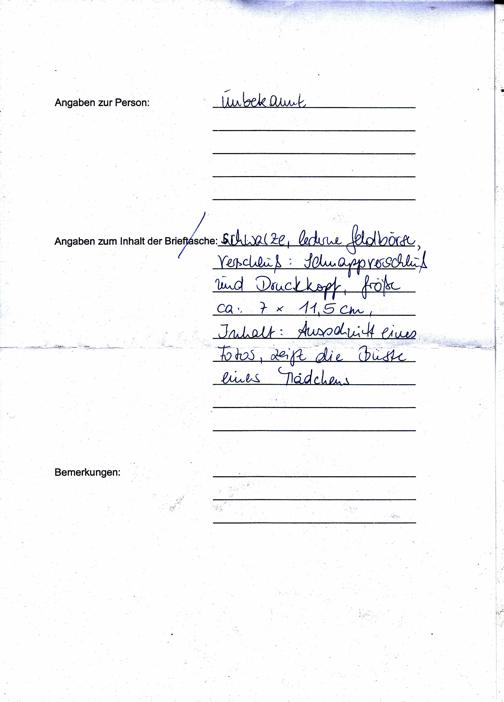 Angaben zur Person: Unbekannt
Angaben zum Inhalt der Brieftasche: schwarze, lederne Geldbörse,
Verschluß: Schnappverschluß
und Druckkopf, Größe
ca. 7 x 11,5 cm,
Inhalt: Ausschnitt eines
Fotos, zeigt die Büste
eines Mädchens
Bemerkungen: